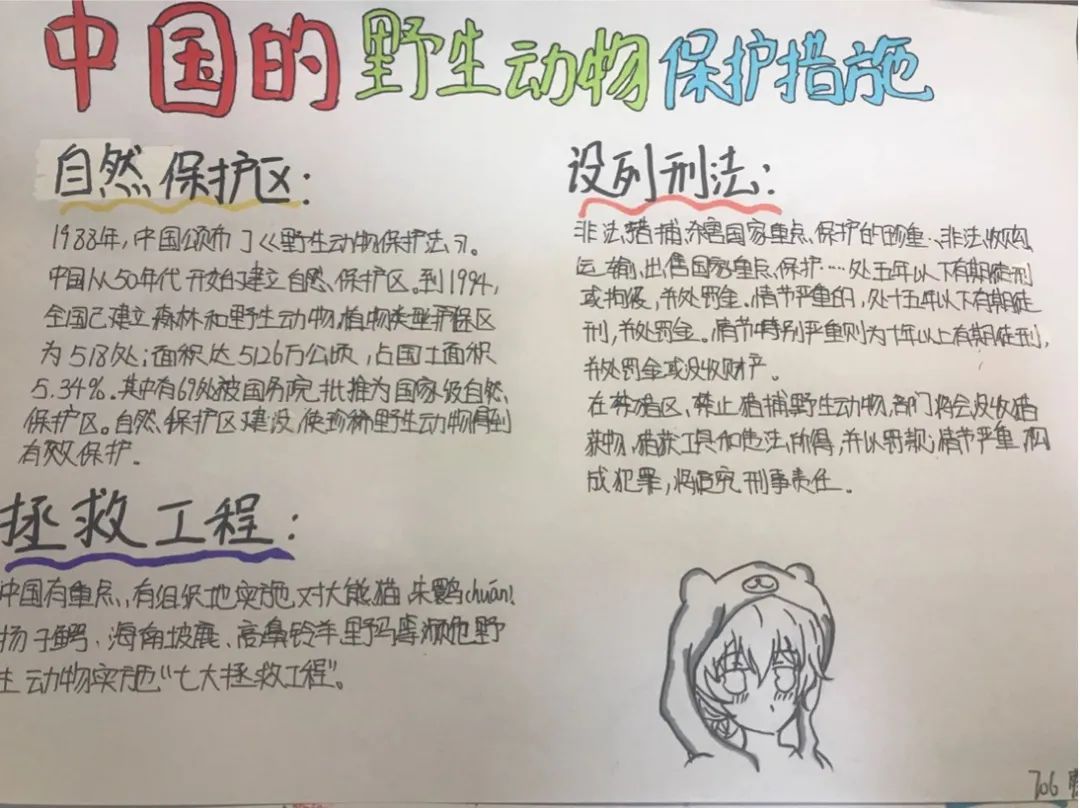 中国的野生动物保护措施
自然保护区:
1988年,中国颁布了《野生动物保护法》。
中国从50年代开始建立自然保护区。到1994,
全国已建立森林和野生动物,植物类型护保区
为518处;面积达5126万公顷,占国土面积
5.34%。其中有69处被国务院批推为国家级自然
保护区。自然保护区建设,使珍稀野生动物得到
有效保护。
拯救工程:
中国有重点、有组织地实施对大熊猫、朱鹮chuán!
扬子鳄、海南坡鹿、高鼻羚羊、野马等濒危野
生动物实施"七大拯救工程"。
设列刑法:
非法猎捕,杀害国家重点保护的珍重、非法收购
运输、出售国家重点保护……处五年以下有期徒刑
或拘役,并处罚金。情节严重的,处十五年以下有期徒
刑,并处罚金。情节特别严重则为十年以上有期徒刑,
并处罚金或没收财产。
在禁猎区,禁止猎捕野生动物,部门将会没收猎
获物,猎获工具和违法所得,并以罚款;情节严重,构
成犯罪,将追究刑事责任。
706